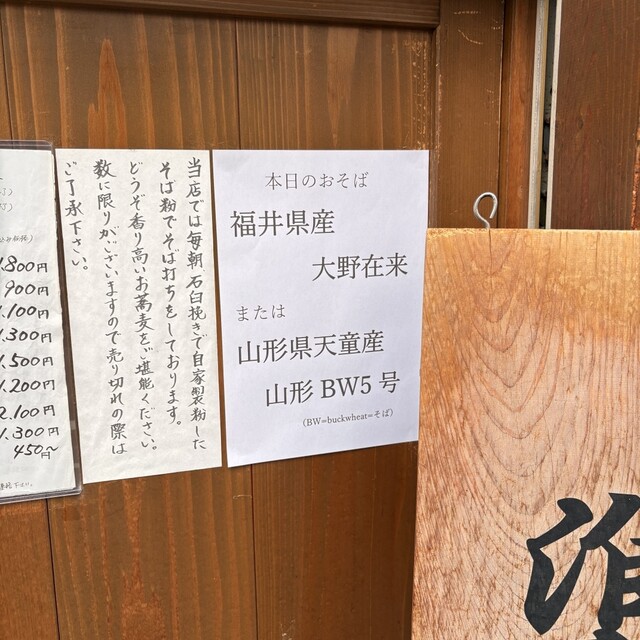 本日のおそば
福井県産
大野在来
または
山形県天童産
山形 BW5 号
（BW=buckwheat=そば）
当店では毎朝、石臼挽きで自家製粉した
そば粉でそば打ちをしております。
どうぞ香り高いお蕎麦をご堪能ください。
数に限りがございますので売り切れの際は
ご了承下さい。
.800円
900円
.100円
.300円
.500円
.200円
2.100円
1.300円
450円~